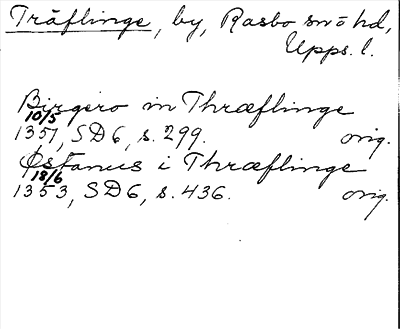 Träflinge, by, Rasbo sn o hd,
Upps. l.
Birgero in Thræflinge
10/5
1351, SD6, s. 299. orig.
Østanus i Thræflinge
18/6
1353, SD6, s. 436. orig.